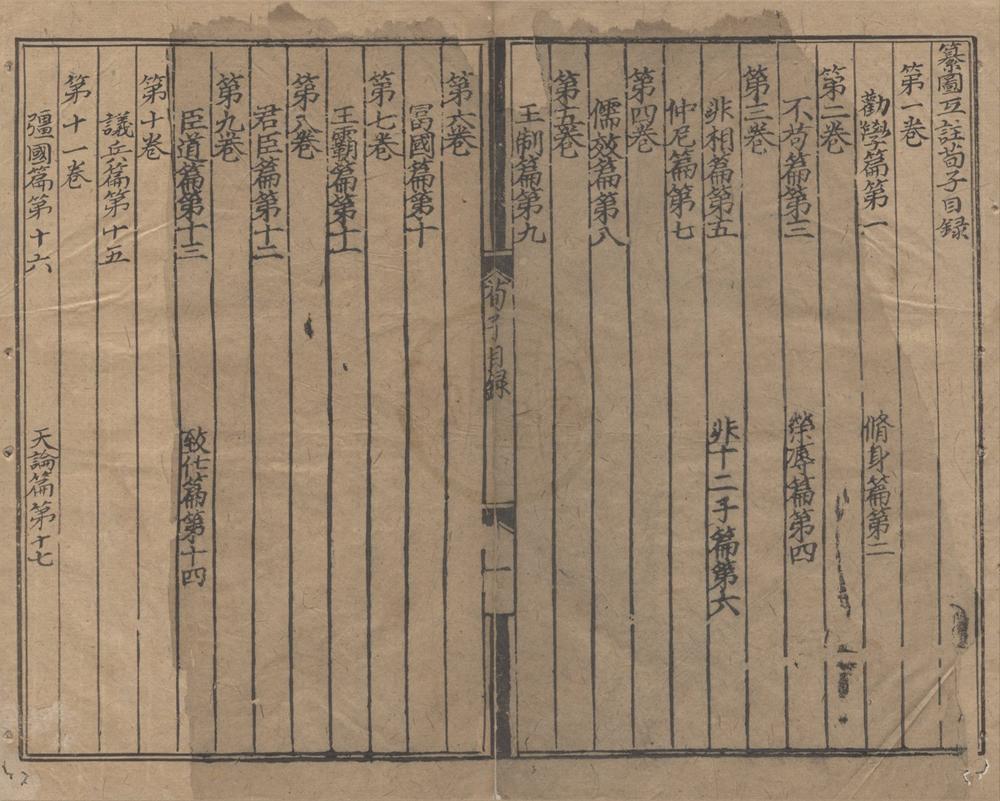 纂圖互註荀子目録
第一卷
勸學篇第一 脩身篇第二
第二卷
不苟篇第三 榮辱篇第四
第三卷
非相篇第五 非十二子篇第六
仲尼篇第七
第四卷
儒效篇第八
第五卷
王制篇第九
荀子目録
一
第六卷
冨國篇第十
第七卷
王霸篇第十一
第八卷
君臣篇第十二
第九卷
臣道篇第十三 致仕篇第十四
第十卷
議兵篇第十五
第十一卷
彊國篇第十六 天論篇第十七